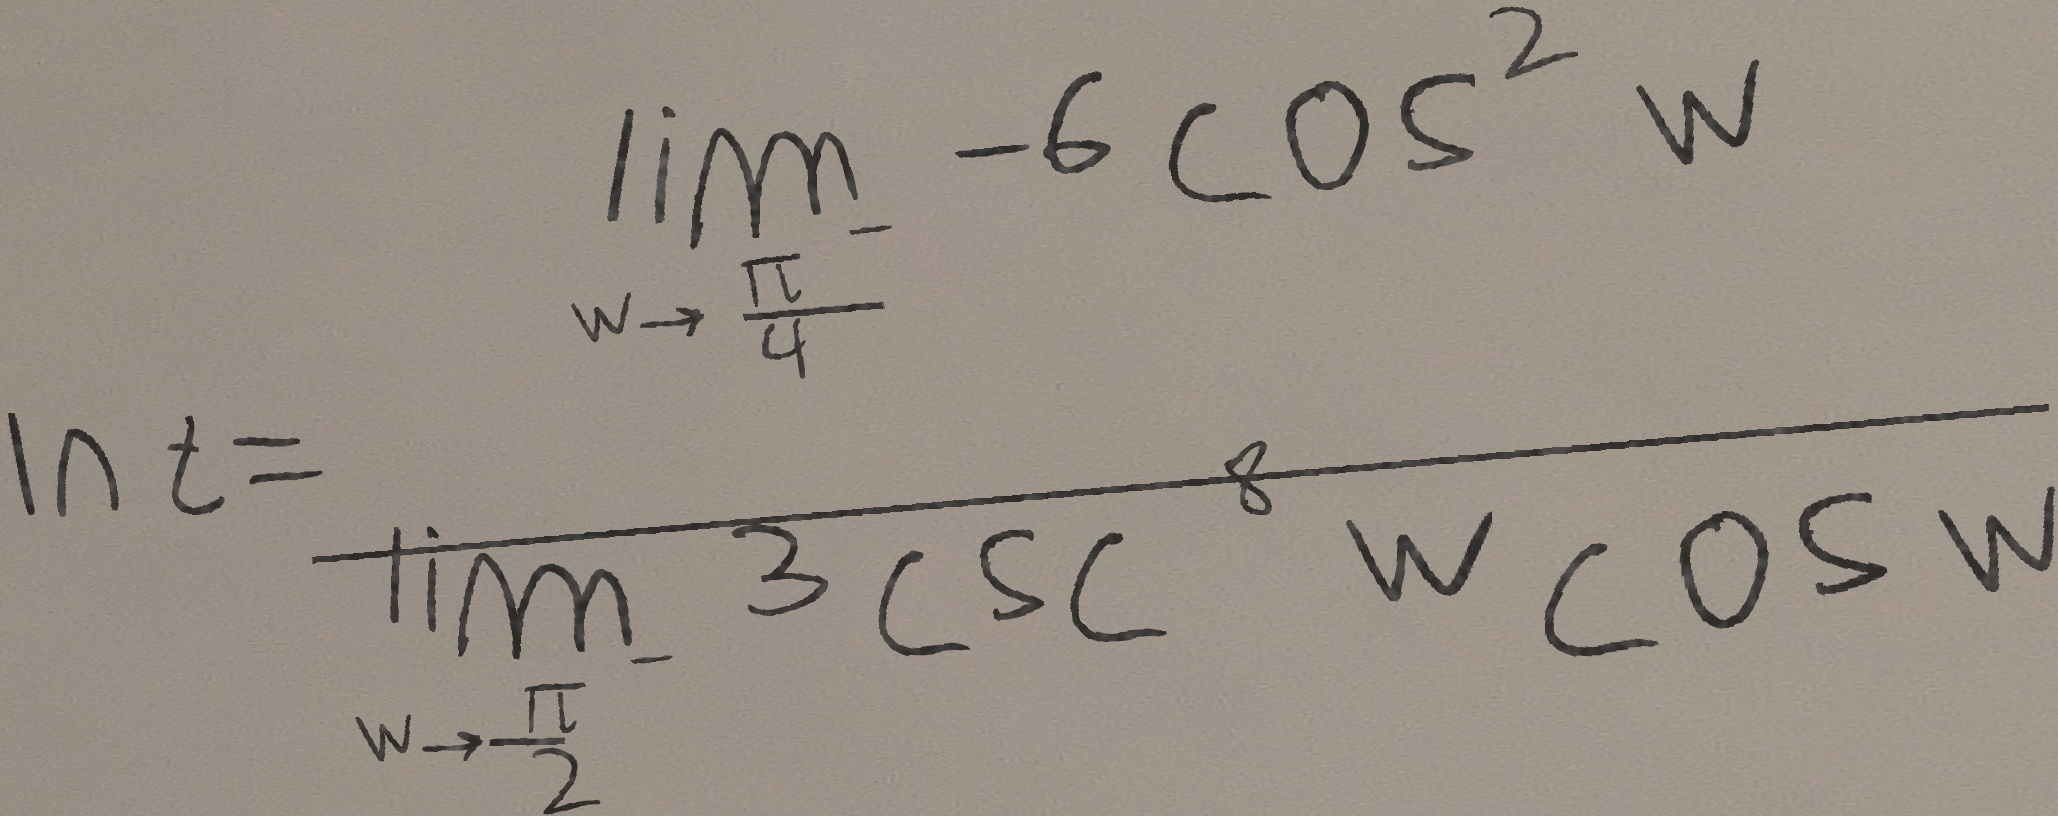 \ln t = \frac{\lim_{w \to \frac{\pi}{4}^{-}} -6 \cos^{2} w}{\lim_{w \to \frac{\pi}{2}^{-}} 3 \csc^{8} w \cos w}